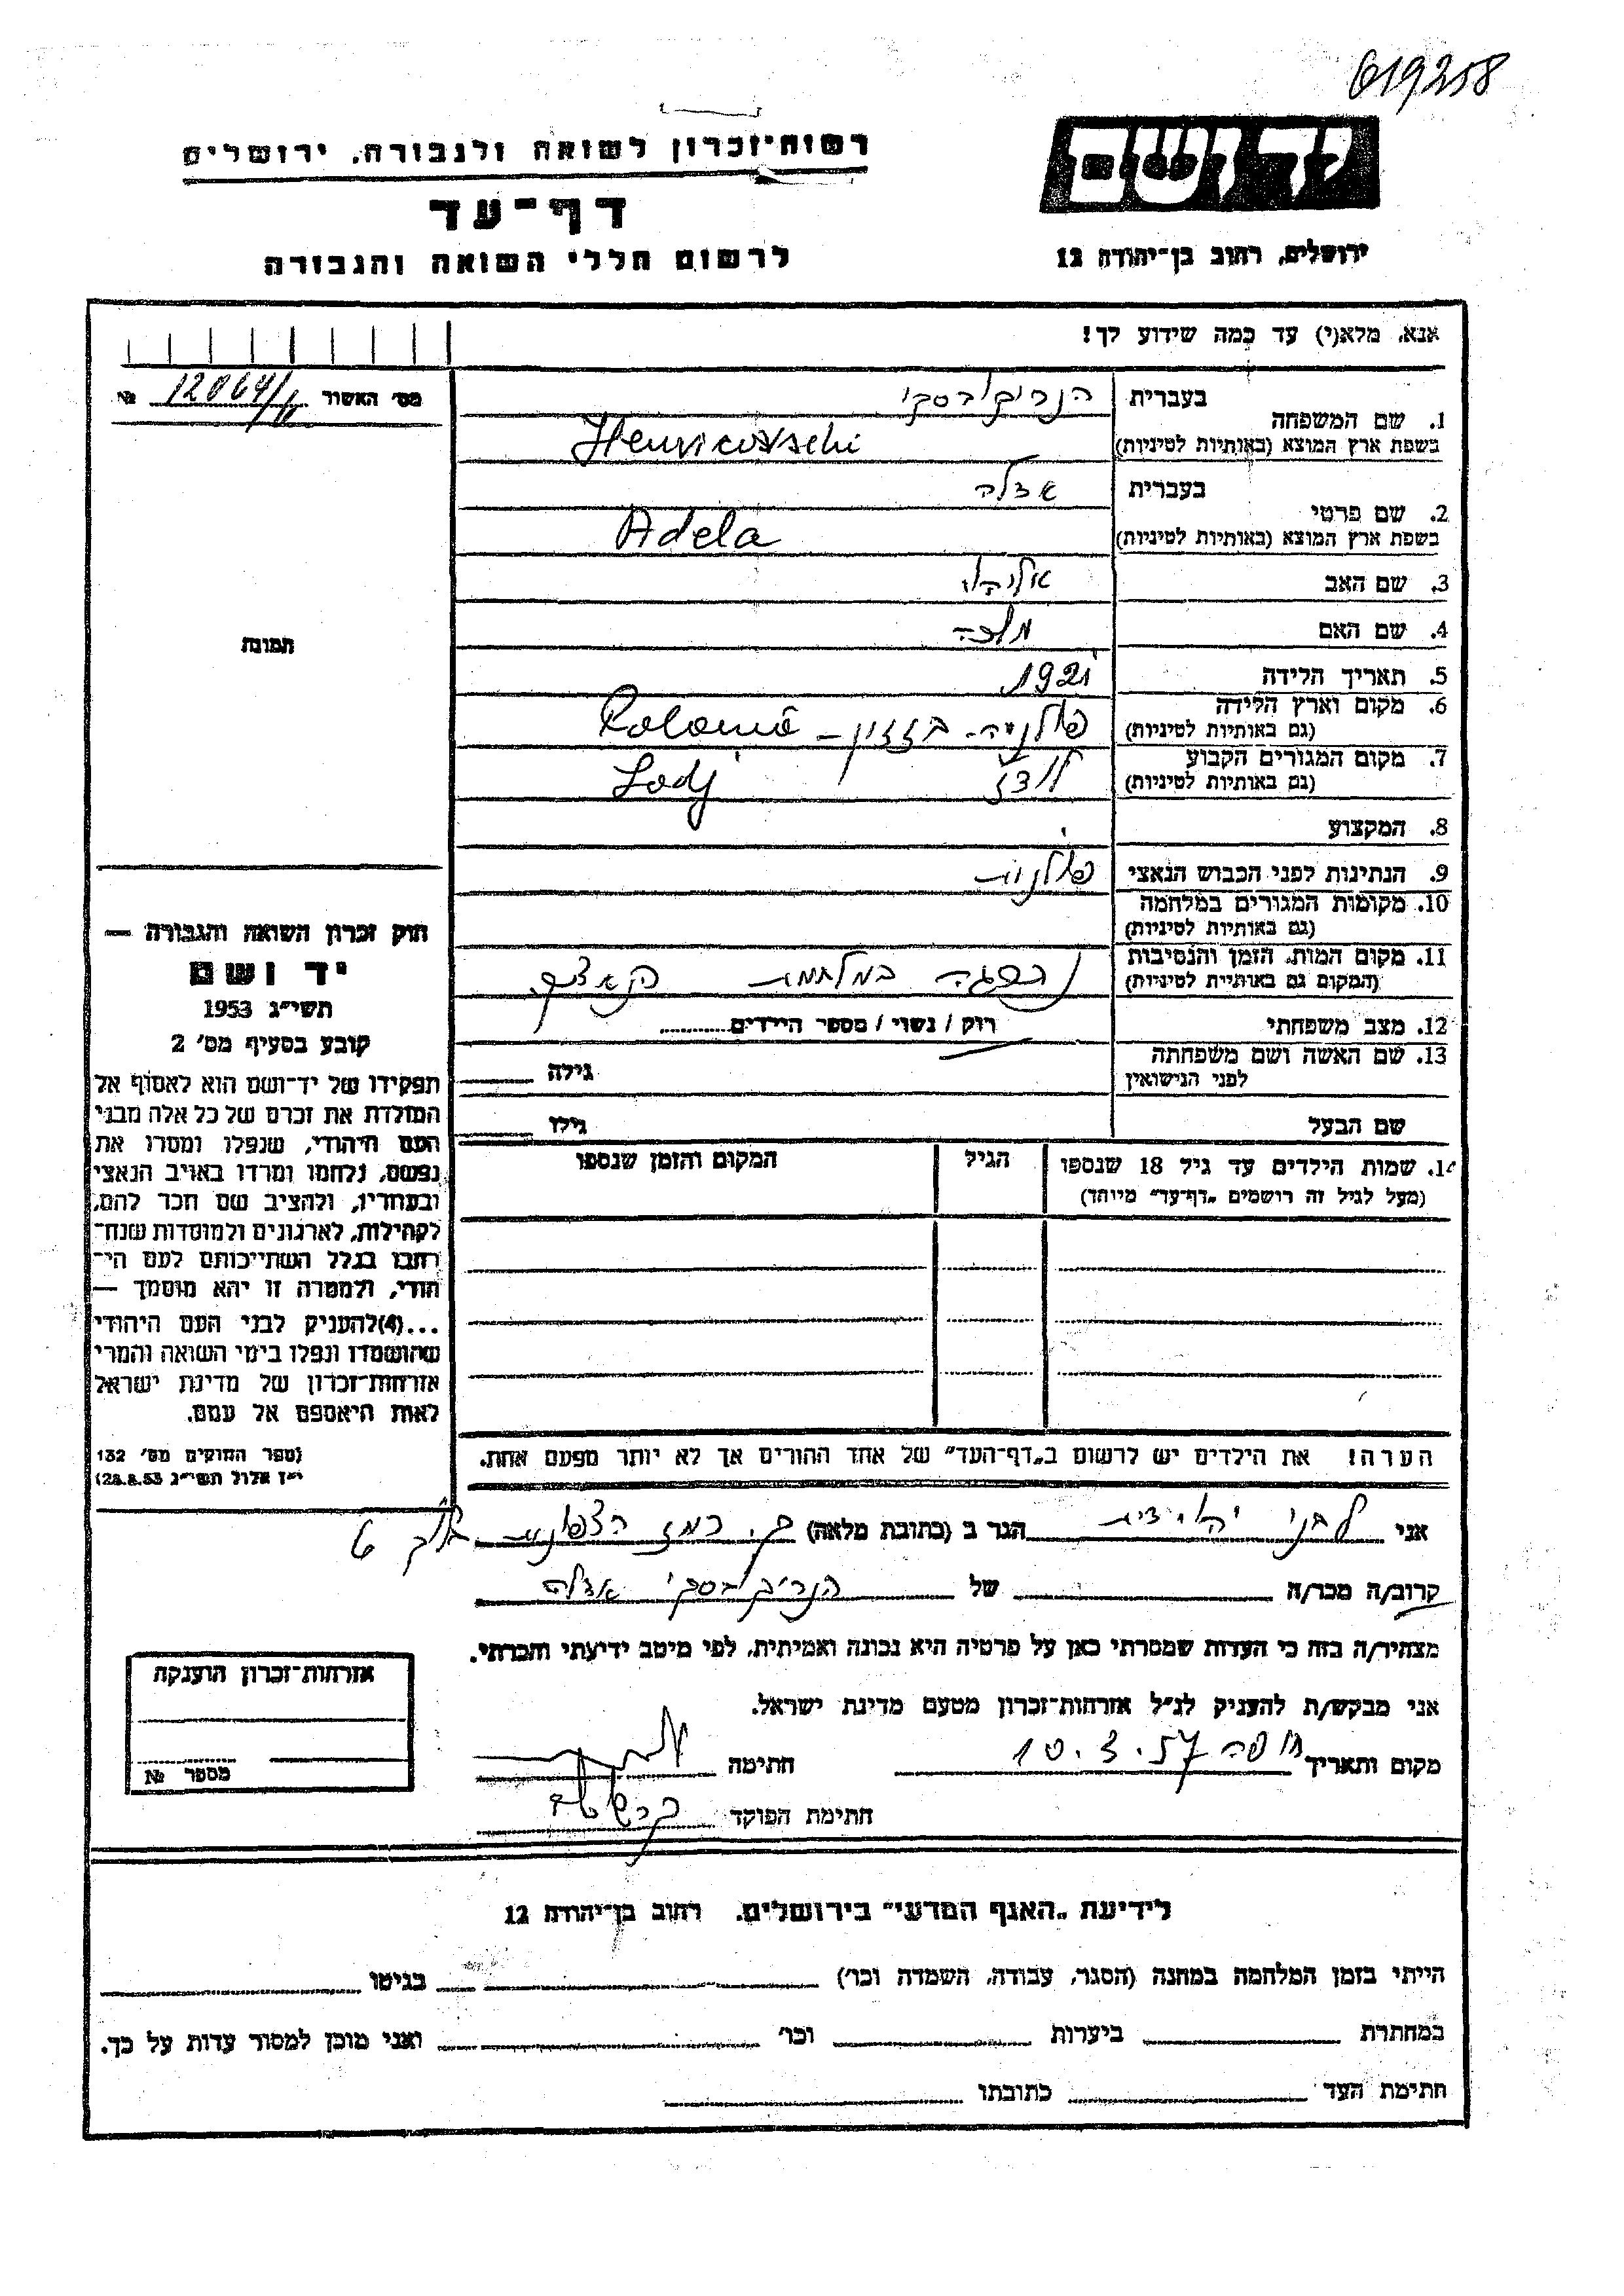 619258
יד ושם
ירושלים, רחוב בן־יהודה 12
רשות־זכרון לשואה ולגבורה, ירושלים
דף־עד
לרשום חללי השואה והגבורה
אנא, מלא(י) עד כמה שידוע לך!
מס' האשור № 12064/
1. שם המשפחה
בעברית הנריקובסקי
בשפת ארץ המוצא (באותיות לטיניות)
2. שם פרטי
בעברית אדלה
בשפת ארץ המוצא (באותיות לטיניות) Adela
3. שם האב
4. שם האם מלכה
5. תאריך הלידה 1921
6. מקום וארץ הלידה
(גם באותיות לטיניות)
7. מקום המגורים הקבוע לודז Lodj
(גם באותיות לטיניות)
8. המקצוע
9. הנתינות לפני הכבוש הנאצי פולנית
10. מקומות המגורים במלחמה
(גם באותיות לטיניות)
11. מקום המות, הזמן והנסיבות נספגה במלחמת
(המקום גם באותיות לטיניות)
12. מצב משפחתי רוק / נשוי / מספר הילדים
13. שם האשה ושם משפחתה גילה
לפני הנישואין
שם הבעל גילו
14. שמות הילדים עד גיל 18 שנספו הגיל המקום והזמן שנספו
(מעל לגיל זה רושמים „דף־עד" מיוחד)
הערה! את הילדים יש לרשום ב„דף־העד" של אחד ההורים אך לא יותר מפעם אחת.
תמונה
חוק זכרון השואה והגבורה —
יד ושם
תשי״ג 1953
קובע בסעיף מס' 2
תפקידו של יד־ושם הוא לאסוף אל
המולדת את זכרם של כל אלה מבני
העם היהודי, שנפלו ומסרו את
נפשם, נלחמו ומרדו באויב הנאצי
ובעוזריו, ולהציב שם וזכר להם,
לקהילות, לארגונים ולמוסדות שנח־
רבו בגלל השתייכותם לעם הי־
הודי, ולמטרה זו יהא מוסמך —
...(4)להעניק לבני העם היהודי
שהושמדו ונפלו בימי השואה והמרי
אזרחות־זכרון של מדינת ישראל
לאות היאספם אל עמם.
(ספר החוקים מס' 132
י״ז אלול תשי״ג 28.8.53)
אני לבני יהודית הגר ב (כתובת מלאה) ק. רמז הצפונית בלוק 6
קרוב/ה מכר/ה של הנריקובסקי אדלה
מצהיר/ה בזה כי העדות שמסרתי כאן על פרטיה היא נכונה ואמיתית, לפי מיטב ידיעתי והכרתי.
אני מבקש/ת להעניק לנ״ל אזרחות־זכרון מטעם מדינת ישראל.
מקום ותאריך חיפה 10.3.57 חתימה
חתימת הפוקד
אזרחות־זכרון הוענקה
מספר №
לידיעת „האגף המדעי" בירושלים, רחוב בן־יהודה 12
הייתי בזמן המלחמה במחנה (הסגר, עבודה, השמדה וכו') בגיטו
במחתרת ביערות וכו' ואני מוכן למסור עדות על כך.
חתימת העד כתובתו